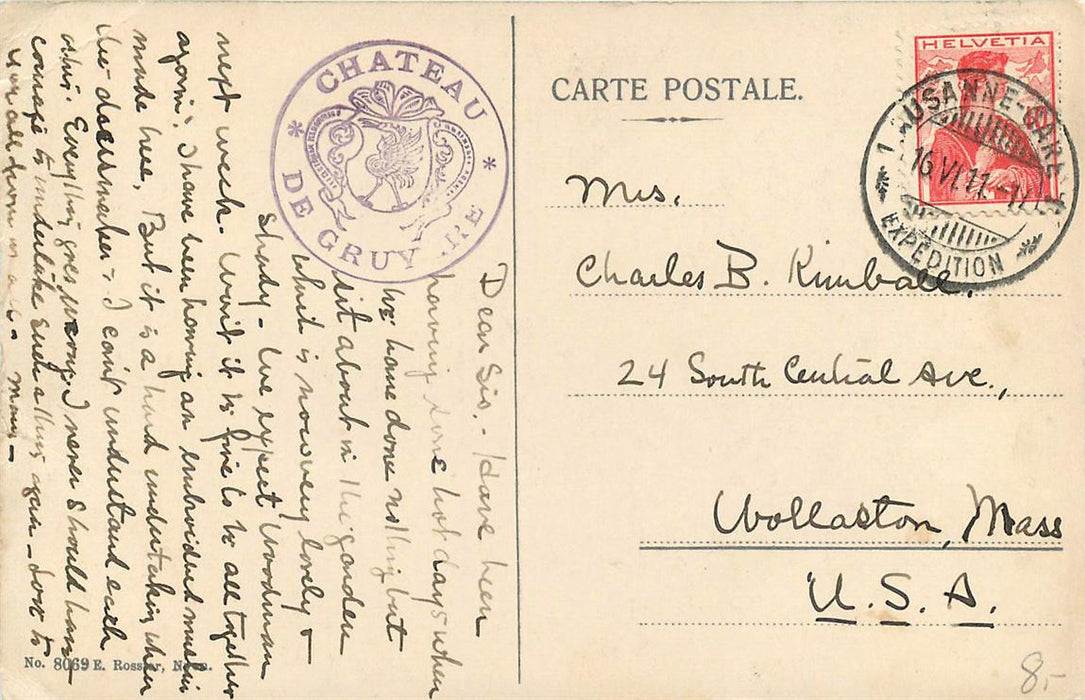 CARTE POSTALE.
HELVETIA
10
1 LAUSANNE-GARE 1
16.VI.11.-
EXPEDITION
* CHATEAU *
DE GRUYERE
Mrs.
Charles B. Kimball.
24 South Central Ave.,
Wollaston, Mass
U.S.A.
Dear Sis. - Have been
having some hot days when
we have done nothing but
sit about in the garden
which is now very lovely +
shady - We expect Woodman
next week. Won't it be fine to be all together
again. I have been having an embroidered muslin
made here, But it is a hard undertaking when
the dressmaker + I can't understand each
other. Everything goes wrong. I never should have
courage to undertake such a thing again - Love to
you all from us all. Mary -
No. 8069 E. Rossier, Nyon.
8.-